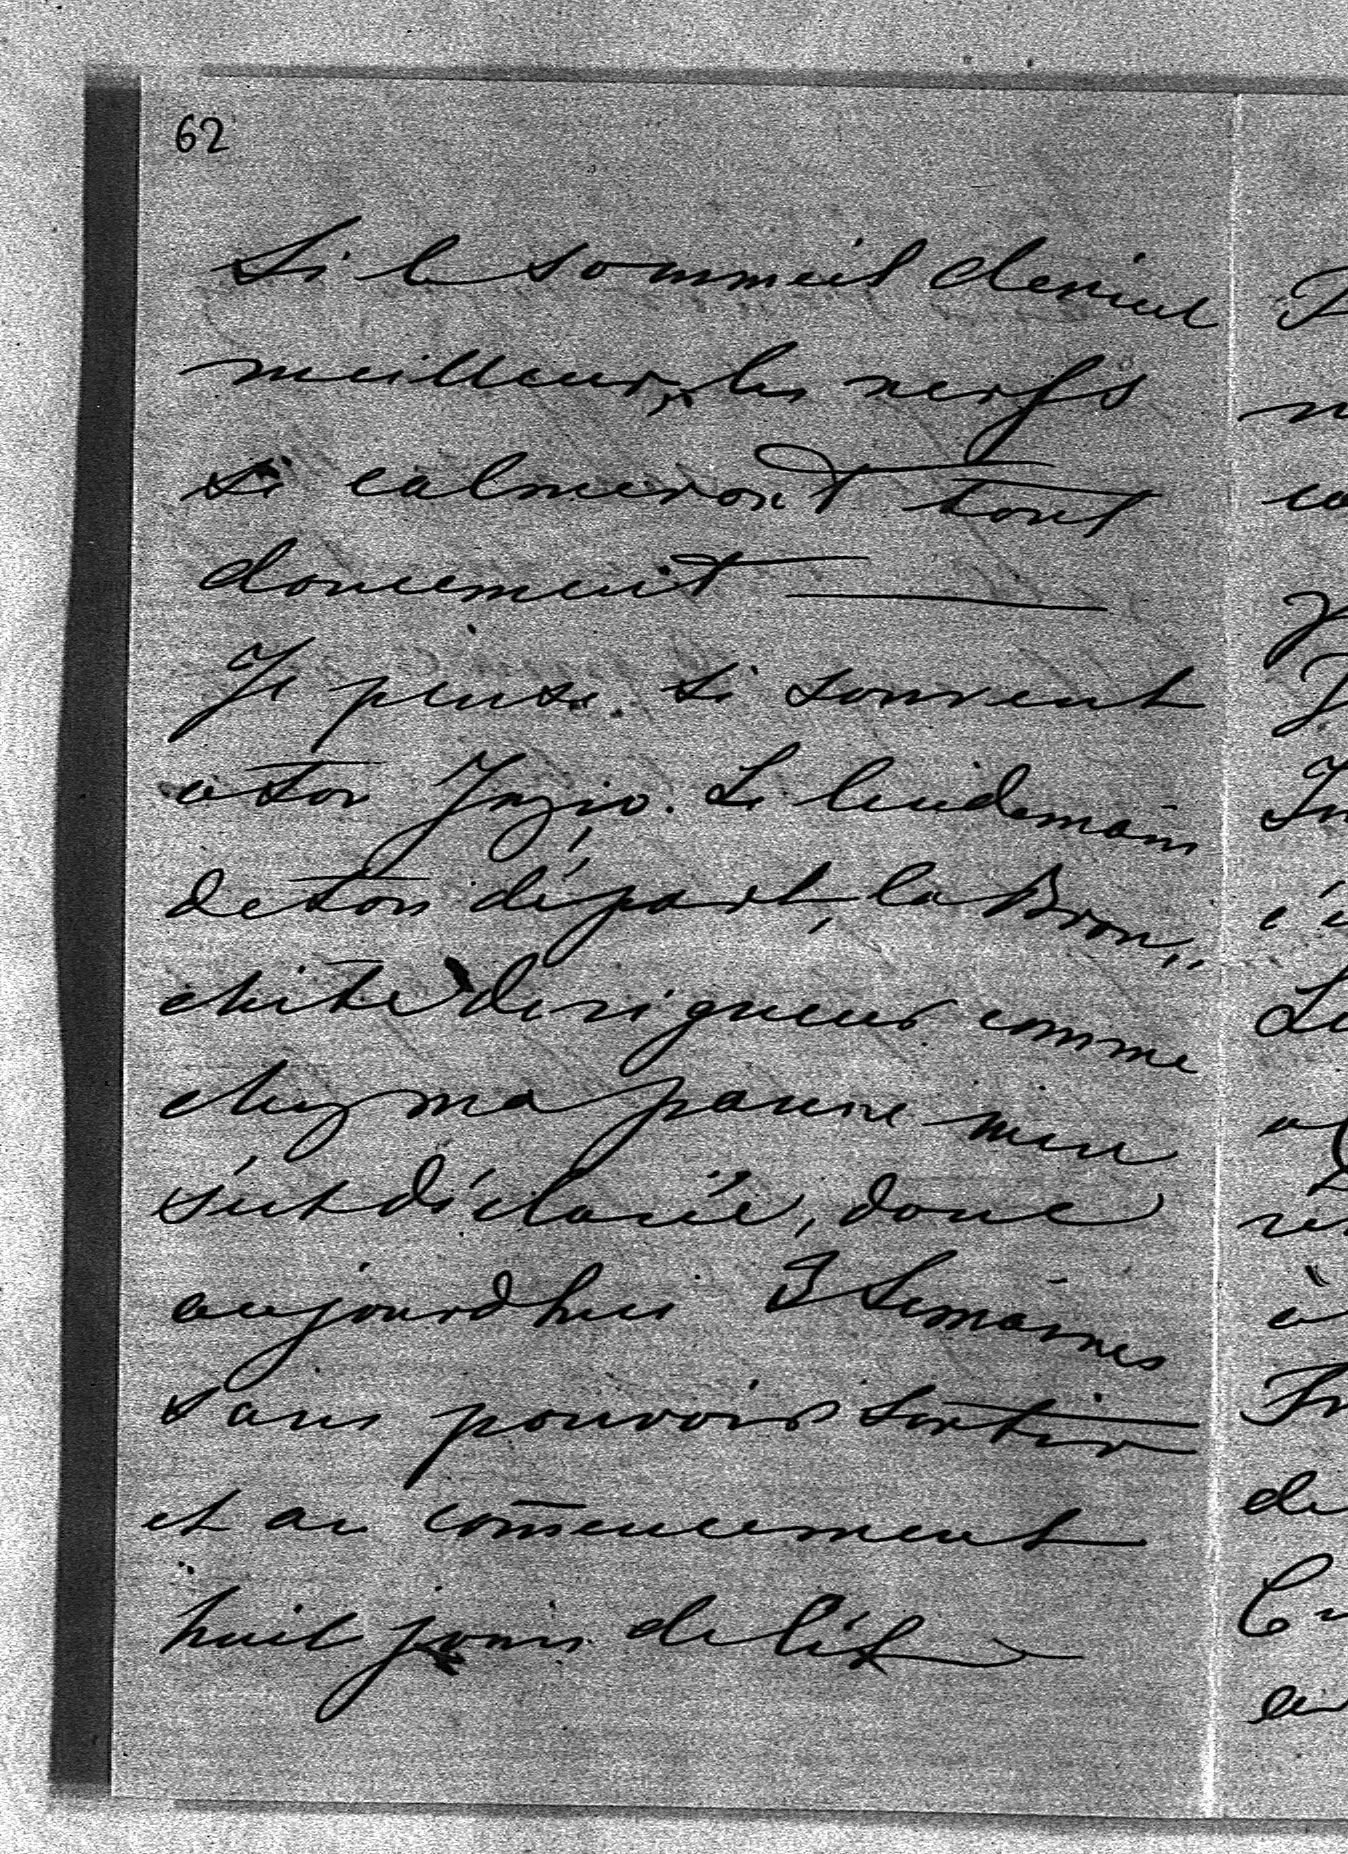 62
Si le sommeil devient
meilleur, les nerfs
se calmeront tout
doucement
Je pense si souvent
à ton Jnzio. Le lendemain
de ton départ, la Bron„
chite de rigueur comme
chez ma pauvre mère
s'est déclarée, donc
aujourd'hui 3 Semaines
sans pouvoir sortir
et au com̄encement
huit jours de lit